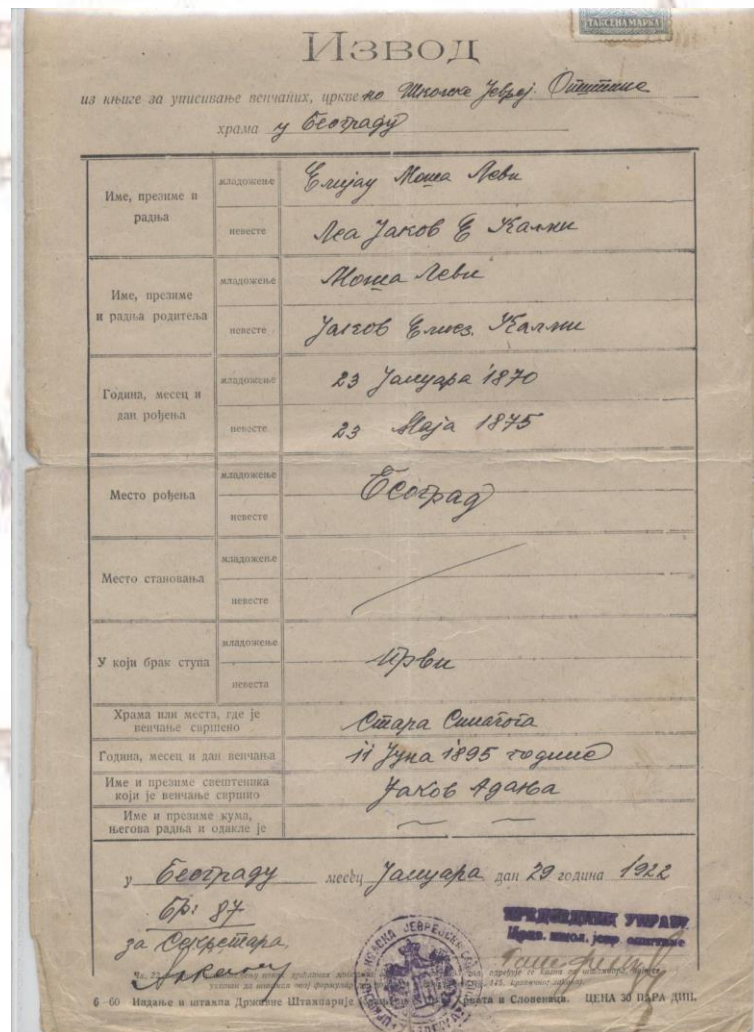 ТАКСЕНА МАРКА
Извод
из књиге за уписивање венчаних, цркве но Школске Јевреј. Општине
храма у Београду
Име, презиме и радња
младожење Елијау Моша Леви
невесте Леа Јаков Е Калми
Име, презиме и радња родитеља
младожење Моша Леви
невесте Јаков Елиез. Калми
Година, месец и дан рођења
младожење 23 Јануара 1870
невесте 23 Маја 1875
Место рођења
младожење Београд
невесте
Место становања
младожење
невесте
У који брак ступа
младожење Први
невеста
Храма или места, где је венчање свршено Стара Синагога
Година, месец и дан венчања 11 Јуна 1895 године
Име и презиме свештеника који је венчање свршио Јаков Адања
Име и презиме кума, његова радња и одакле је
у Београду месец Јануара дан 29 година 1922
Бр: 87
за Секретара
ПРЕДСЕДНИК УПРАВЕ
Цркв. школ. јевр. општине
6—60 Издање и штампа Државне Штампарије Хрвата и Словенаца. ЦЕНА 30 ПАРА ДИН.